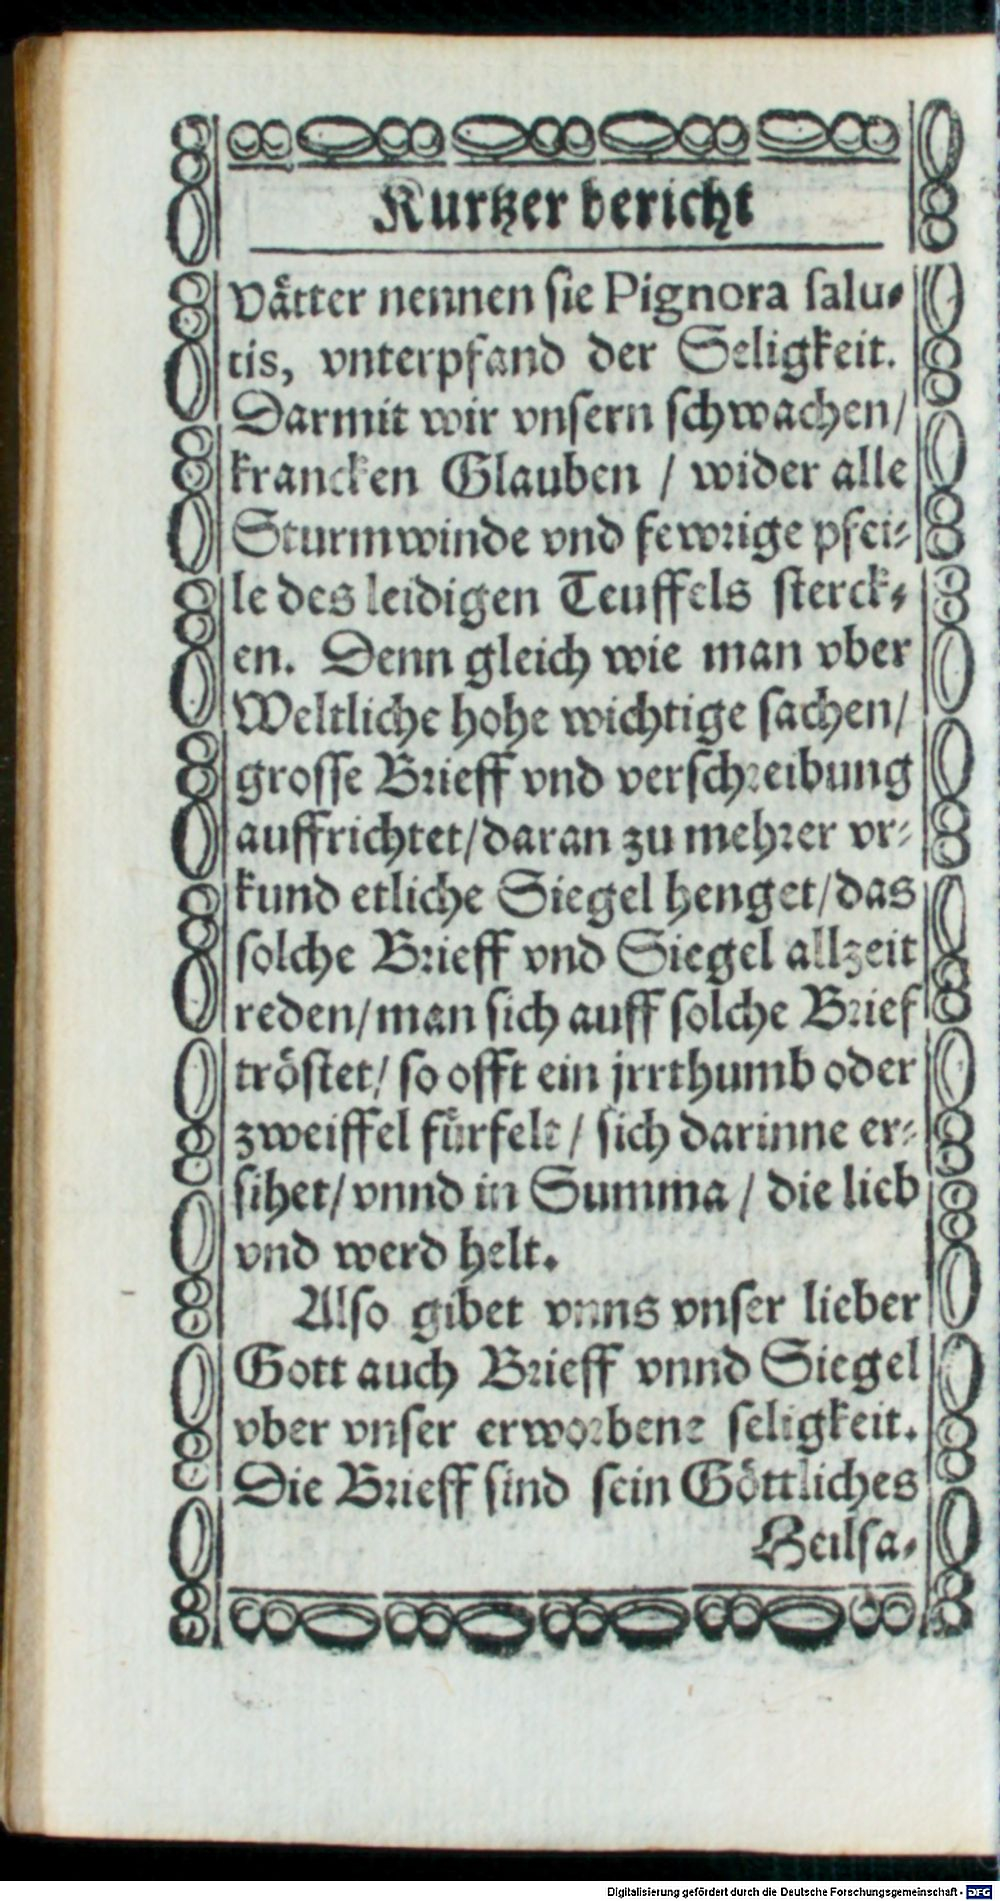 Kurtzer bericht
Vätter nennen sie Pignora salu-
tis, vnterpfand der Seligkeit.
Darmit wir vnsern schwachen/
krancken Glauben / wider alle
Sturmwinde vnd fewrige pfei-
le des leidigen Teuffels sterck-
en. Denn gleich wie man vber
Weltliche hohe wichtige sachen/
grosse Brieff vnd verschreibung
auffrichtet/daran zu mehrer vr-
kund etliche Siegel henget/das
solche Brieff vnd Siegel allzeit
reden/man sich auff solche Brief
tröstet/ so offt ein jrrthumb oder
zweiffel fürfelt / sich darinne er-
sihet/ vnnd in Summa / die lieb
vnd werd helt.
Also gibet vnns vnser lieber
Gott auch Brieff vnnd Siegel
vber vnser erworbene seligkeit.
Die Brieff sind sein Göttliches
Heilsa-
Digitalisierung gefördert durch die Deutsche Forschungsgemeinschaft - DFG